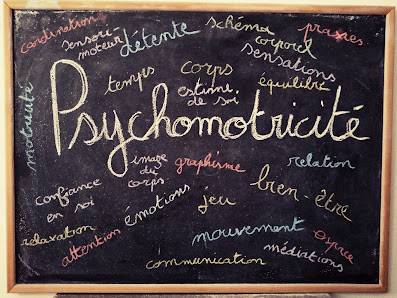 coordination
sensori
moteur
détente
schéma
corporel
praxies
sensations
temps
corps
estime
de soi
équilibre
Psychomotricité
motricité
image
du
corps
graphisme
relation
confiance
en soi
émotions
jeu
bien-être
relaxation
attention
mouvement
espace
médiations
communication